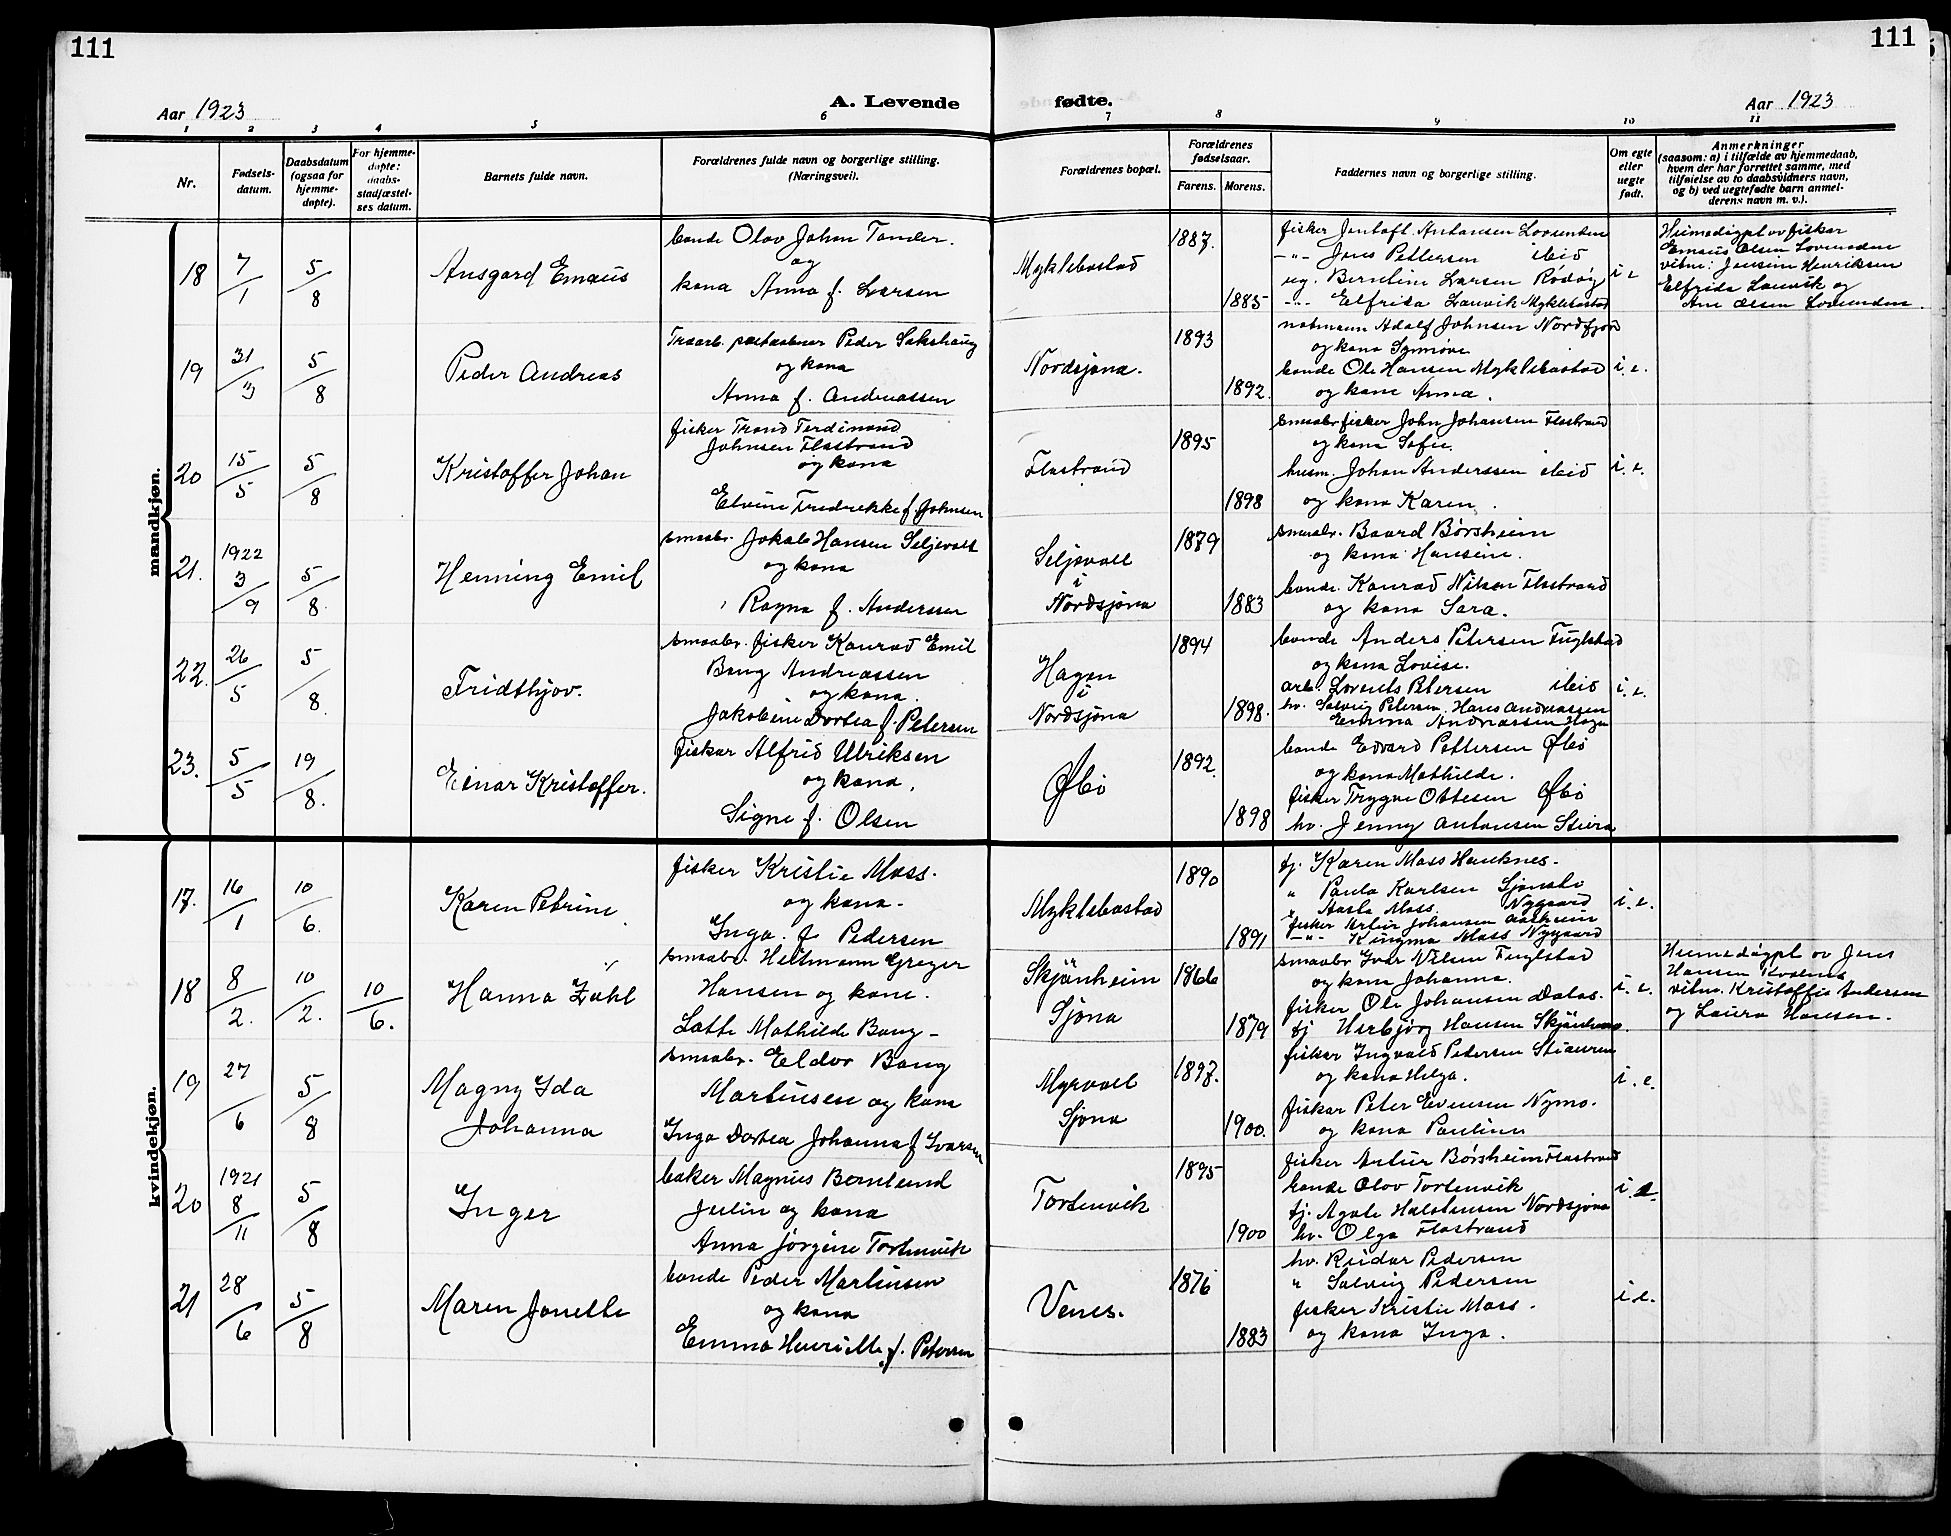 111
111
Aar 1923
A. Levende
fødte.
Aar 1923
1 2 3 4 5 6 7 8 9 10 11
Nr.
Fødsels-
datum.
Daabsdatum
(ogsaa for
hjemme-
døpte).
For hjemme-
døpte:
daabs-
stadfæstel-
ses datum.
Barnets fulde navn.
Forældrenes fulde navn og borgerlige stilling.
(Næringsvei).
Forældrenes bopæl.
Forældrenes
fødselsaar.
Farens. Morens.
Faddernes navn og borgerlige stilling.
Om egte
eller
uegte
født.
Anmerkninger
(saasom: a) i tilfælde av hjemmedaab,
hvem der har forrettet samme, med
tilføielse av to daabsvidners navn,
og b) ved uegtefødte barn anmel-
derens navn m. v.).
mandkjøn.
18
7/1
5/8
Ansgard Emaus
bonde Olav Johan Tonder.
og
kona Anna f. Larsen
Myklebostad
1887.
1885
fisker Jentoft Antonsen Lovunden
-"- Jens Pettersen ibid
ug. Berntine Larsen Rødøy
-"- Elfrida Lauvik Myklebostad
i e
Heimedøypt av fisker
Emaus Olsen Lovunden
vitne: Jensine Henriksen
Elfrida Lauvik og
Ane Olsen Lovunden
19
31/3
5/8
Peder Andreas
Trearb. postaabner Peder Sakshaug
og kona
Anna f. Andreassen
Nordsjona.
1893
1892.
notmann Adolf Johnsen Nordfjord
og kona Synnøve
bonde Ole Hansen Myklebostad
og kona Anna.
i. e.
20
15/5
5/8
Kristoffer Johan
fisker Trond Ferdinand
Johnsen Flostrand
og kona
Elvine Fredrekke f. Johnsen
Flostrand
1895
1898
smaabr fisker John Johansen Flostrand
og kona Sofie.
husm. Johan Anderssen ibid
og kona Karen.
i. e.
21.
1922
3/9
5/8.
Henning Emil
smaabr. Jakob Hansen Seljevoll
og kona
Ragna f. Anderssen
Seljevoll
i
Nordsjona
1879
1883
smaabr. Baard Børsheim
og kona Hansine.
bonde. Konrad Nilsen Flostrand
og kona Sara.
22.
26/5
5/8
Fridthjov.
smaabr. fisker Konrad Emil
Bang Andreassen
og kona.
Jakobine Dortea f. Petersen
Hagen
i
Nordsjona
1894
1898.
bonde Anders Petersen Fuglstad
og kona Lovise.
arb. Lorents Petersen ibid
hv. Solveig Petersen. Hans Andreassen
Emma Andreassen Hagen
i. e.
23.
5/5
19/8.
Einar Kristoffer.
fisker Alfrid Ulriksen
og kona.
Signe f. Olsen
Øbø
1892.
1898
bonde Edvard Pettersen Øbø
og kona Mathilde.
fisker Trygve Ottesen Øbø
hv. Jenny Antonsen
kvindekjøn.
17.
16/1
10/6.
Karen Petrine
fisker Kristie Moss.
og kona.
Inga. f Pedersen
Myklebostad
1890
1891
tj. Karen Moss Hauknes.
" Paula Karlsen
" Aasta Moss. Nygaard
fisker Artur Johansen Aasheim
-"- Moss Nygaard
i. e.
18
8/2.
10/2.
10/6.
Hanna Zahl
smaabr. Heitmann Greger
Hansen og kone.
Lotte Mathilde Bang-
Skjånheim
Sjona
1866
1879
smaabr Ivar Nilsen Fuglstad
og kona Johanna.
fisker Ole Johansen Dalos.
tj Herbjørg Hansen Skjånheim.
i. e.
Heimedøypt av Jens
Hansen Kvalnes
vitne. Kristoffis Andersen
og Laura Hansen.
19
27/6
5/8
Magny Ida
Johanna
smaabr. Eldor Bang
Martinsen og kona
Inga Dortea Johanna f Ivarsen
Myrvoll
Sjona
1897.
1900.
fisker Ingvald Pedersen
og kona Helga.
fisker Peter Evensen Nymo.
og kona Pauline
i. e.
20
1921
8/11
5/8
Inger
baker Magnus Berntund
Julin og kona
Anna Jørgine Tortenvik
Tortenvik
1895
1900
fisker Artur Børsheim Flostrand
bonde Olov Tortenvik
tj. Agate Halstensen Nordsjona
hv. Olga Flostrand
i. e.
21
28/6
5/8
Maren Jonette
bonde Peder Martinsen
og kona
Emma Henriette f. Petersen
Venes.
1876
1883
hv. Reidar Pedersen
" Solveig Pedersen
fisker Kristie Moss.
og kona Inga.
i e.